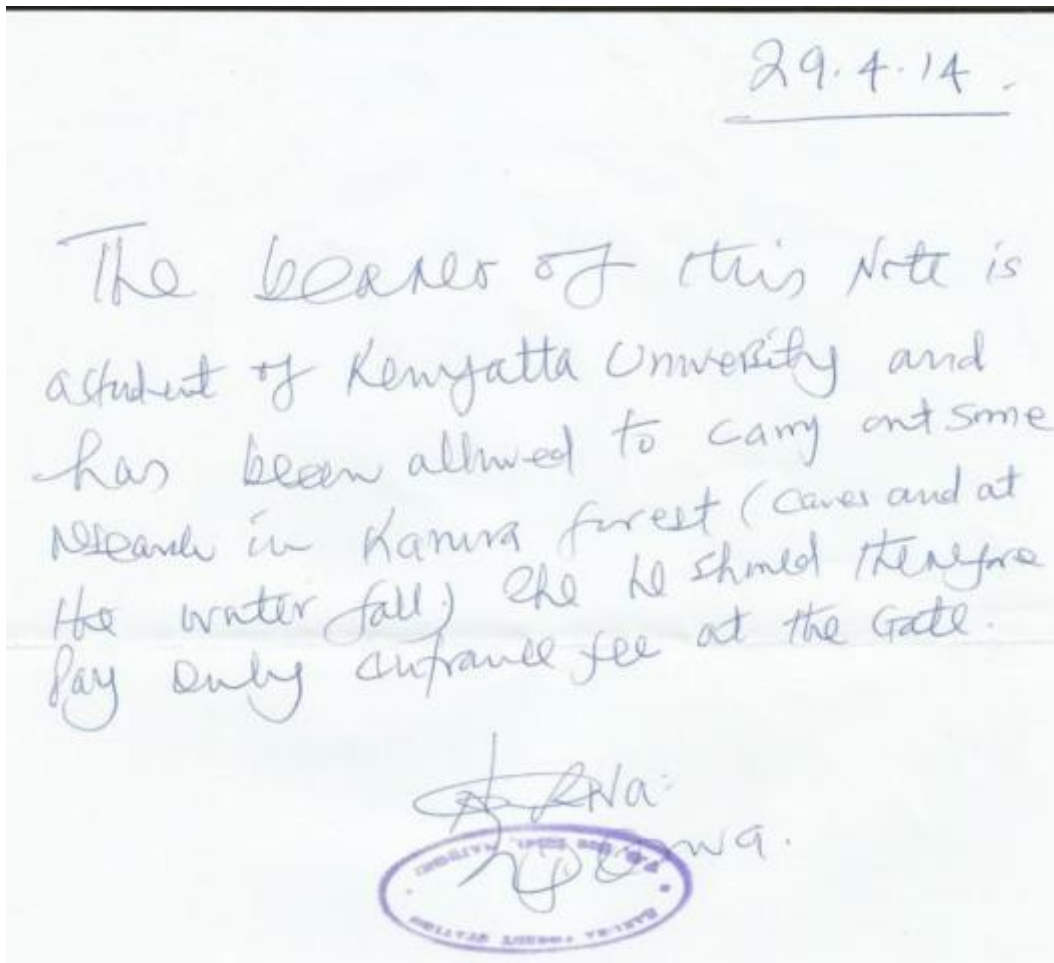 29.4.14.
The bearer of this Note is
astudent of Kenyatta University and
has been allowed to carry out some
research in Karura forest (Caves and at
the water fall.) She he should therefore
Pay only entrance fee at the Gate.
KARURA FOREST STATION
NAIROBI